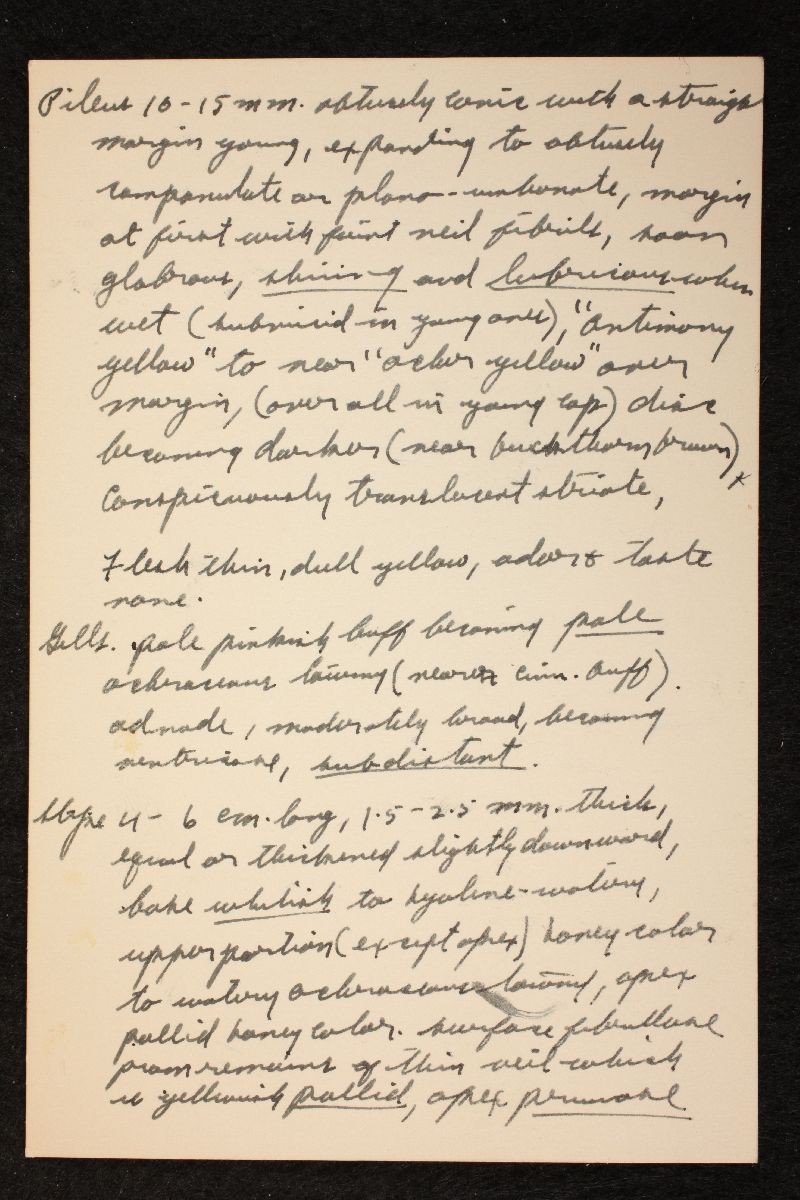 Pileus 10-15 mm. obtusely conic with a straight
margin young, expanding to obtusely
campanulate or plano-umbonate, margin
at first with faint veil fibrils, soon
glabrous, shining and lubricous when
wet (subviscid in young ones), "antimony
yellow" to near "ocher yellow" over
margin, (over all in young cap) disc
becoming darker (near buckthorn brown)
conspicuously translucent striate,
Flesh thin, dull yellow, odor & taste
none.
Gills. pale pinkish buff becoming pale
ochraceous tawny (nearer cinn. buff).
adnate, moderately broad, becoming
ventricose, subdistant.
Stipe 4-6 cm. long, 1.5-2.5 mm. thick,
equal or thickened slightly downward,
base whitish to hyaline-watery,
upper portion (except apex) honey color
to watery ochraceous tawny, apex
pallid honey color. surface fibrillose
from remains of thin veil which
is yellowish pallid, apex pruinose